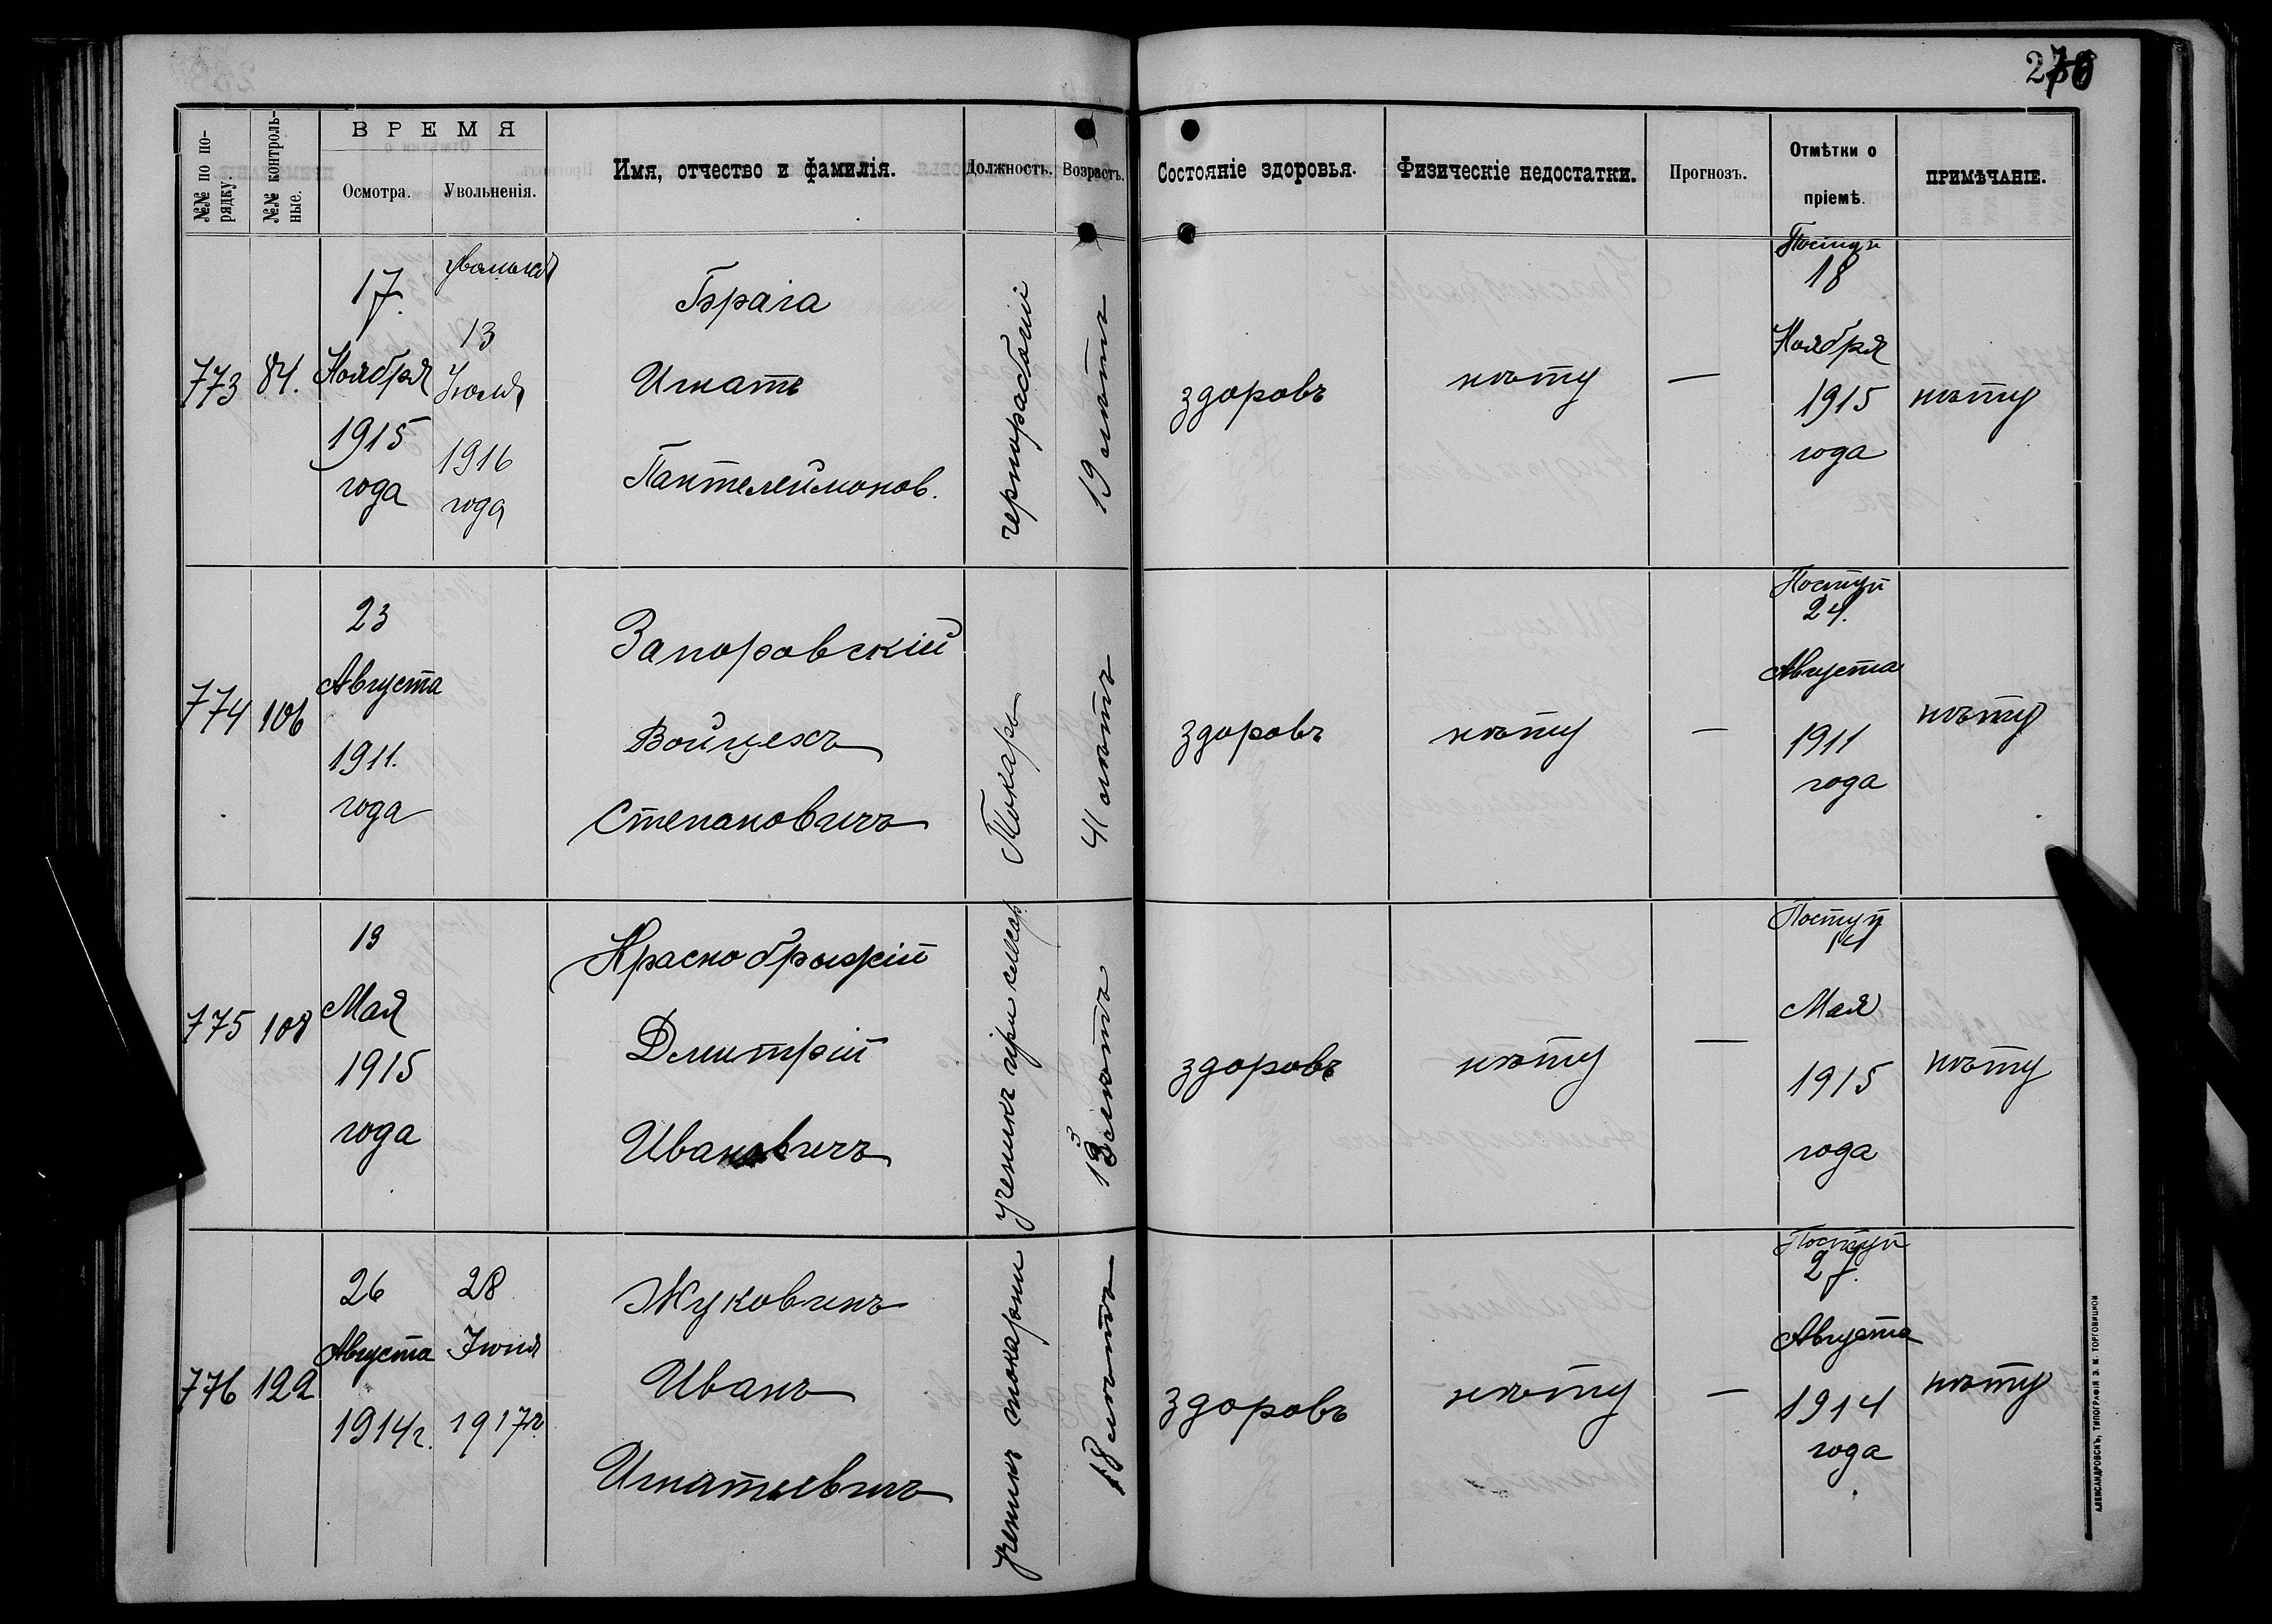 270
№№ по по-
рядку.
№№ контроль-
ные.
ВРЕМЯ
Осмотра.
Увольненія.
Имя, отчество и фамилія.
Должность.
Возрастъ.
Состояніе здоровья.
Физическіе недостатки.
Прогнозъ.
Отмѣтки о
пріемѣ.
ПРИМѢЧАНІЕ.
773
84.
17.
Ноября
1915
года
13
1916
года
Брага
Игнатъ
Пантелеймонов.
чернорабочій
19 лѣтъ
здоровъ
нѣту
—
Поступ
18
Ноября
1915
года
нѣту
774
106
23
Августа
1911.
года
Запоровскій
Войцехъ
Степановичъ
Токарь
41 лѣтъ
здоровъ
нѣту
—
Поступ
24.
Августа
1911
года
нѣту
775
108
13
Мая
1915
года
Краснобрыжій
Дмитрій
Ивановичъ
ученикъ при
13 лѣтъ
здоровъ
нѣту
—
Поступ
14
Мая
1915
года
нѣту
776
122
26
Августа
1914 г.
28
Іюня
1917 г.
Жуковинъ
Иванъ
Игнатьевичъ
ученикъ токарни
18 лѣтъ
здоровъ
нѣту
—
Поступ
27.
Августа
1914
года
нѣту
АЛЕКСАНДРОВСКЪ, ТИПОГРАФІЯ Э. М. ТОРГОВИЦКОЙ